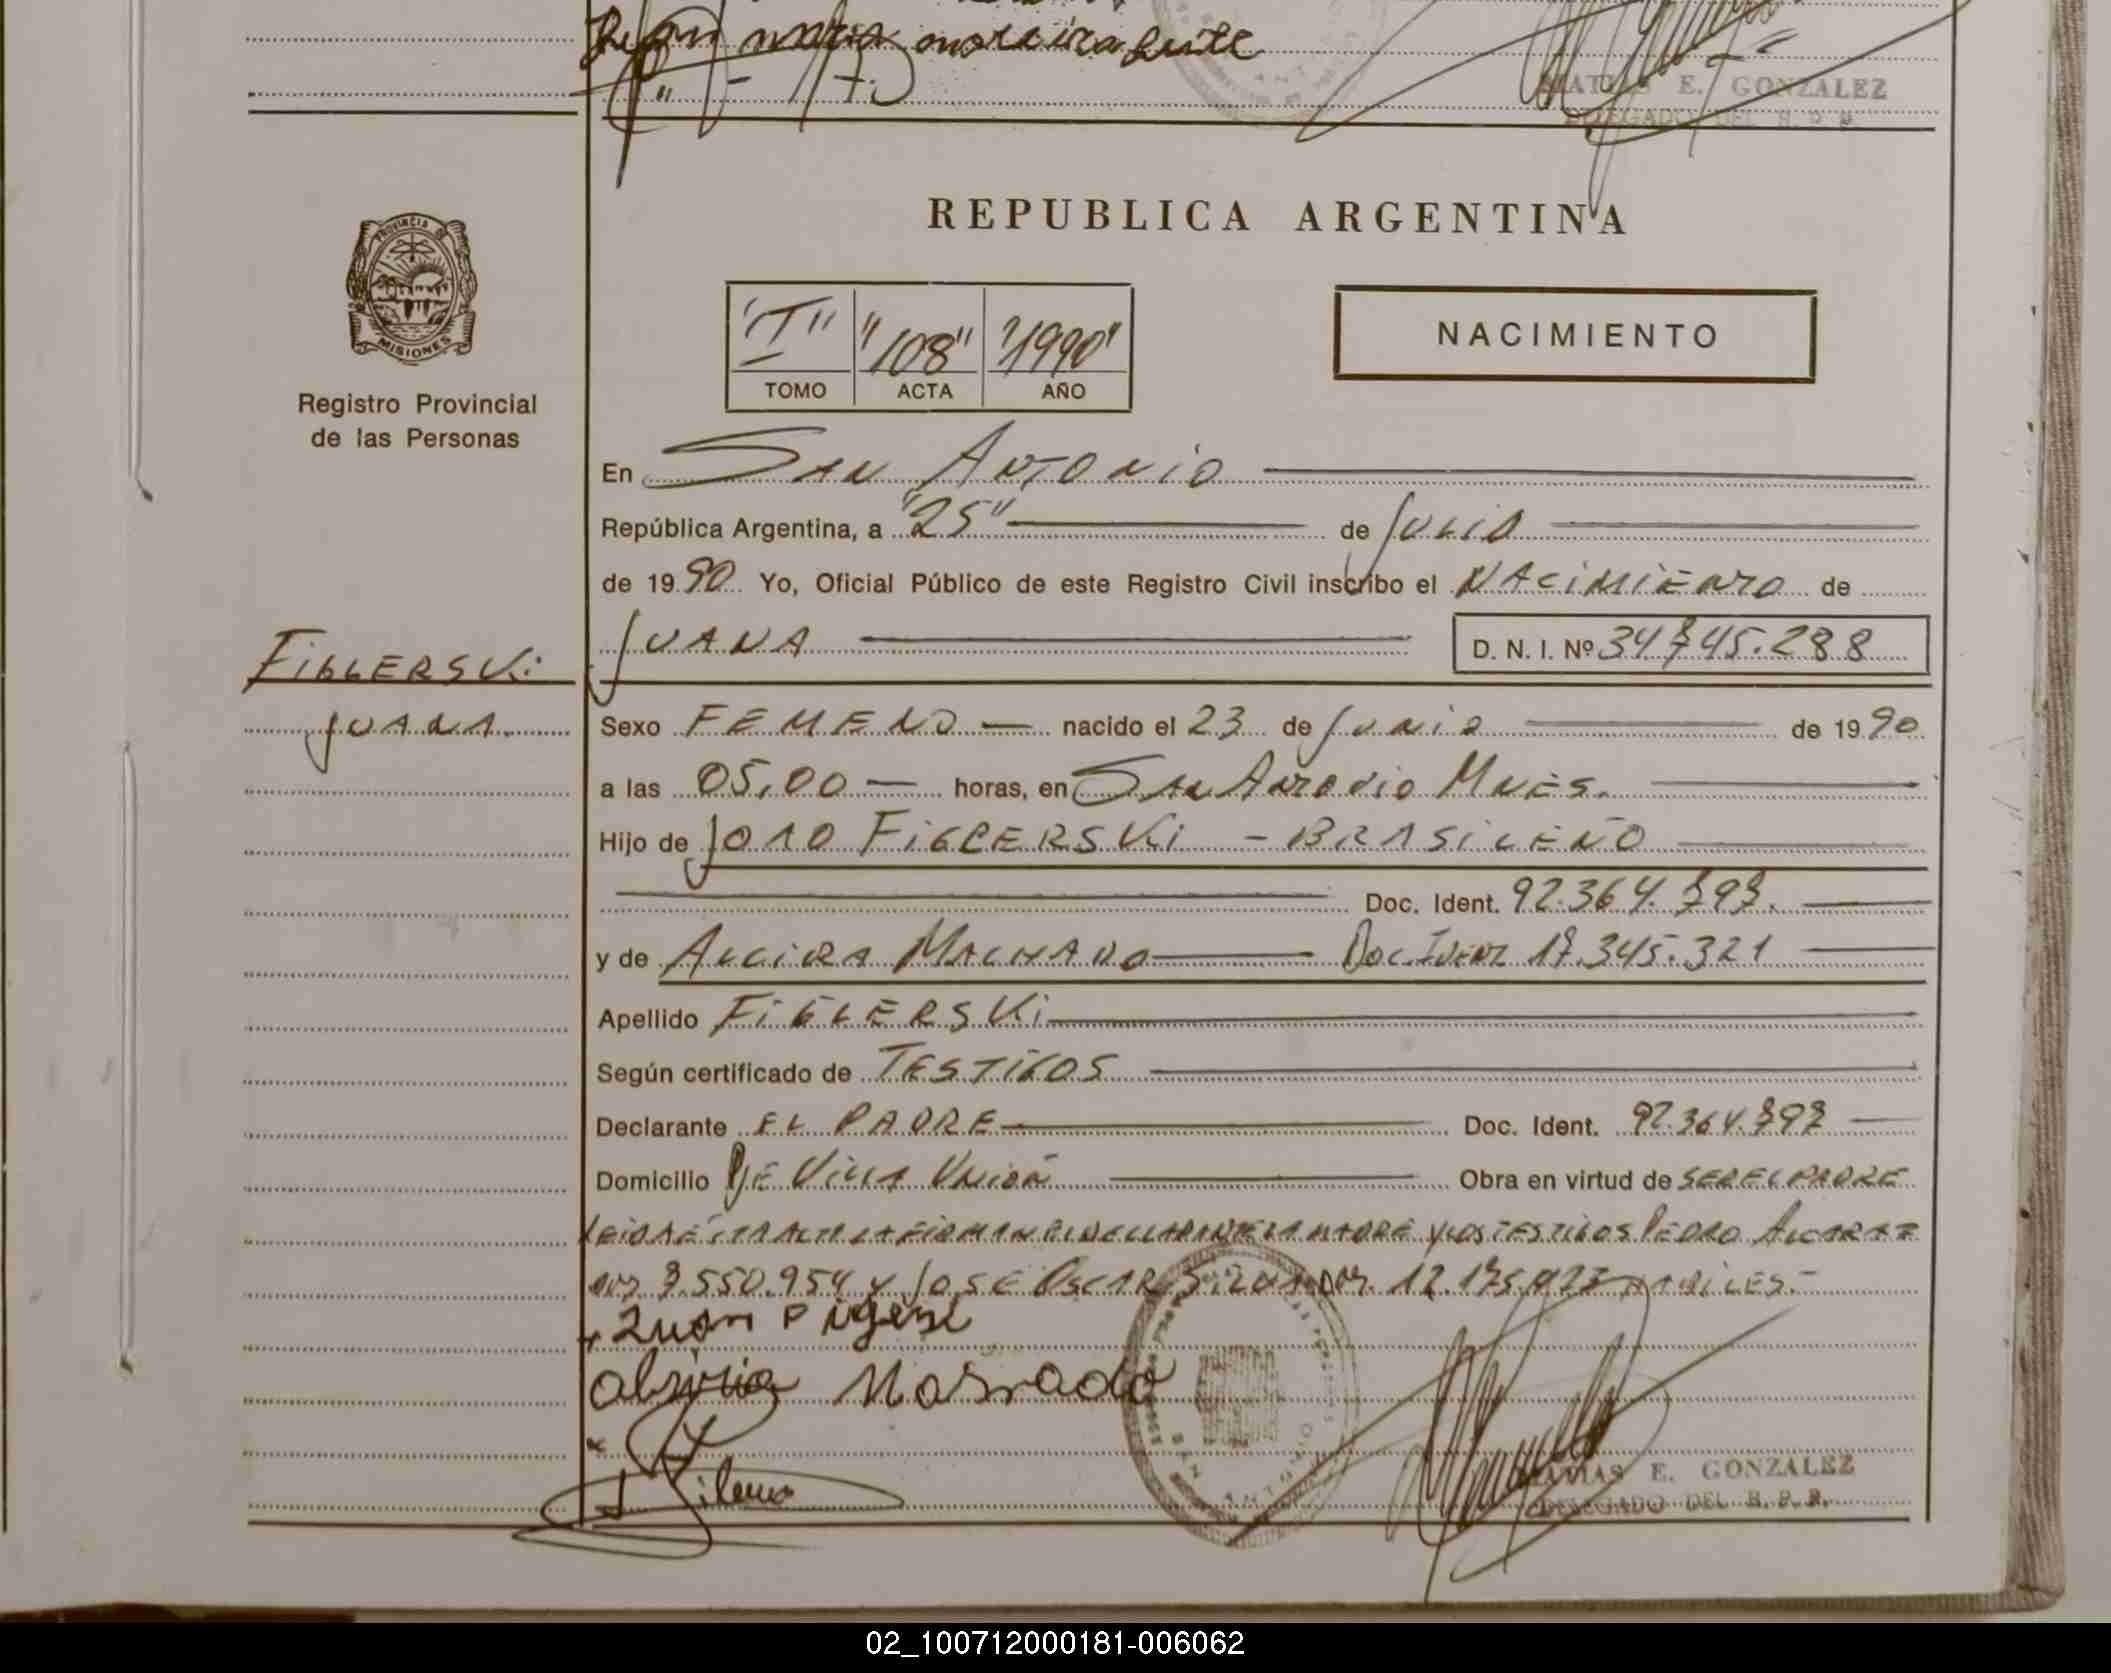 MATIAS E. GONZALEZ
DELEGADO DEL R. P. P.
REPUBLICA ARGENTINA
PROVINCIA DE
MISIONES
Registro Provincial
de las Personas
"I" "108" "1990"
TOMO ACTA AÑO
NACIMIENTO
En San Antonio
República Argentina, a "25" de Julio
de 1990 Yo, Oficial Público de este Registro Civil inscribo el Nacimiento de
Juana D. N. I. Nº 34.745.288
FIGLERSKI
JUANA.
Sexo FEMENO nacido el 23 de Junio de 1990
a las 05,00 horas, en San Antonio Mnes.
Hijo de JOAO FIGLERSKI - BRASILEÑO
Doc. Ident. 92.364.797.
y de ALCIRA MACHADO Doc. Ident 17.345.321
Apellido FIGLERSKI
Según certificado de TESTIGOS
Declarante EL PADRE Doc. Ident. 92.364.797
Domicilio Pje Villa Unión Obra en virtud de SER EL PADRE
LEIDA ESTA ACTA LA FIRMAN EL DECLARANTE LA MADRE Y LOS TESTIGOS PEDRO ALCARAZ
7.550.954 y JOSE OSCAR 12.175.027 HABILES.-
MATIAS E. GONZALEZ
DELEGADO DEL R. P. P.
02_100712000181-006062